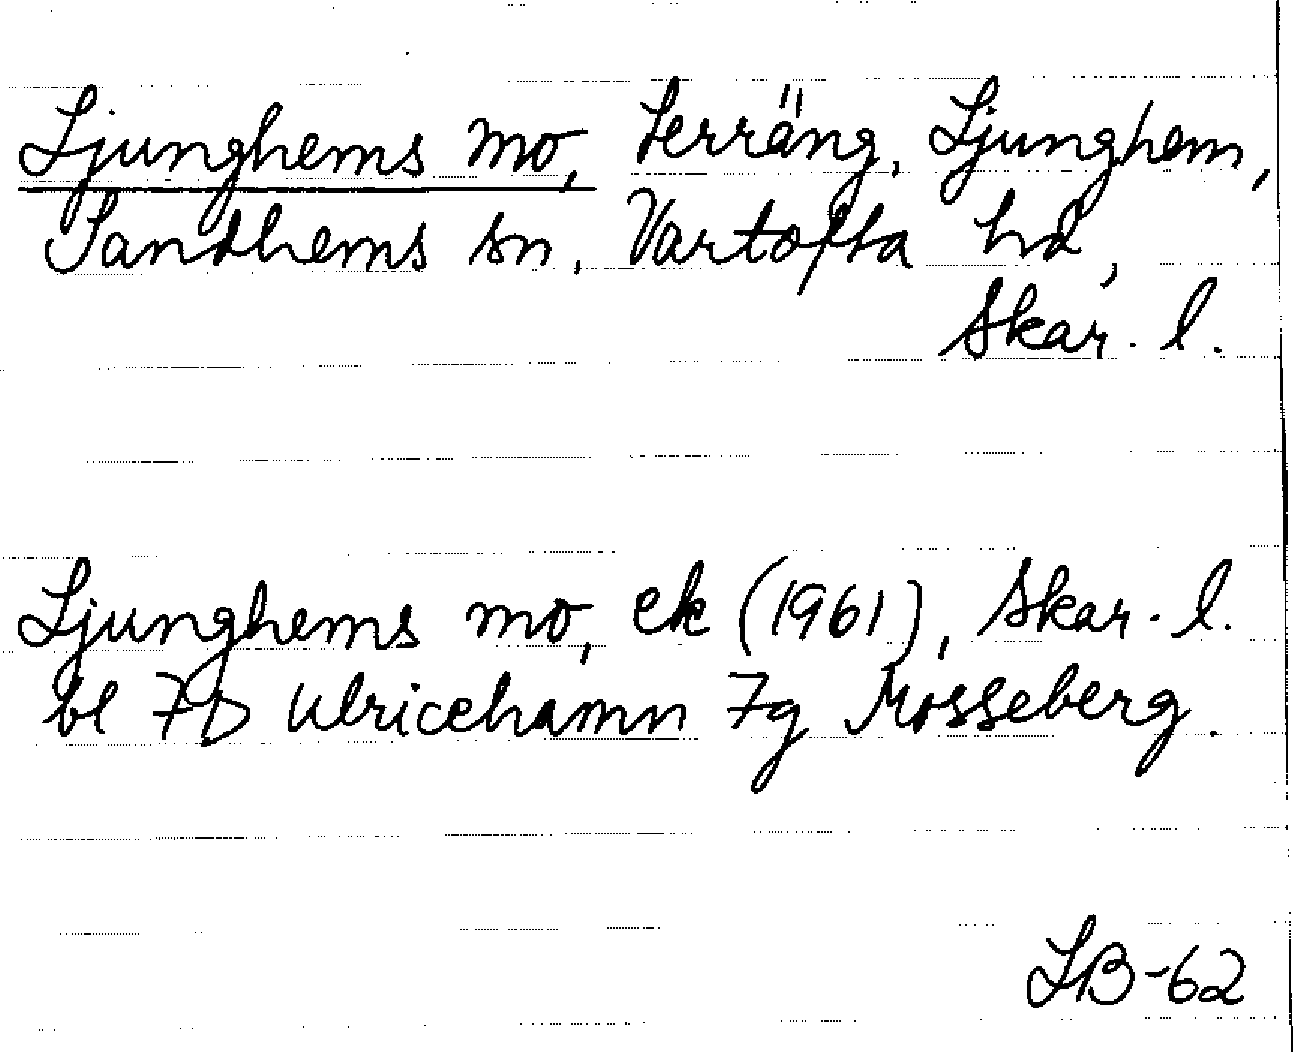 Ljunghems mo, terräng, Ljunghem,
Sandhems sn, Vartofta hd,
Skar. l.
Ljunghems mo, ek (1961), Skar. l.
bl 7D Ulricehamn 7g Mösseberg.
LB-62